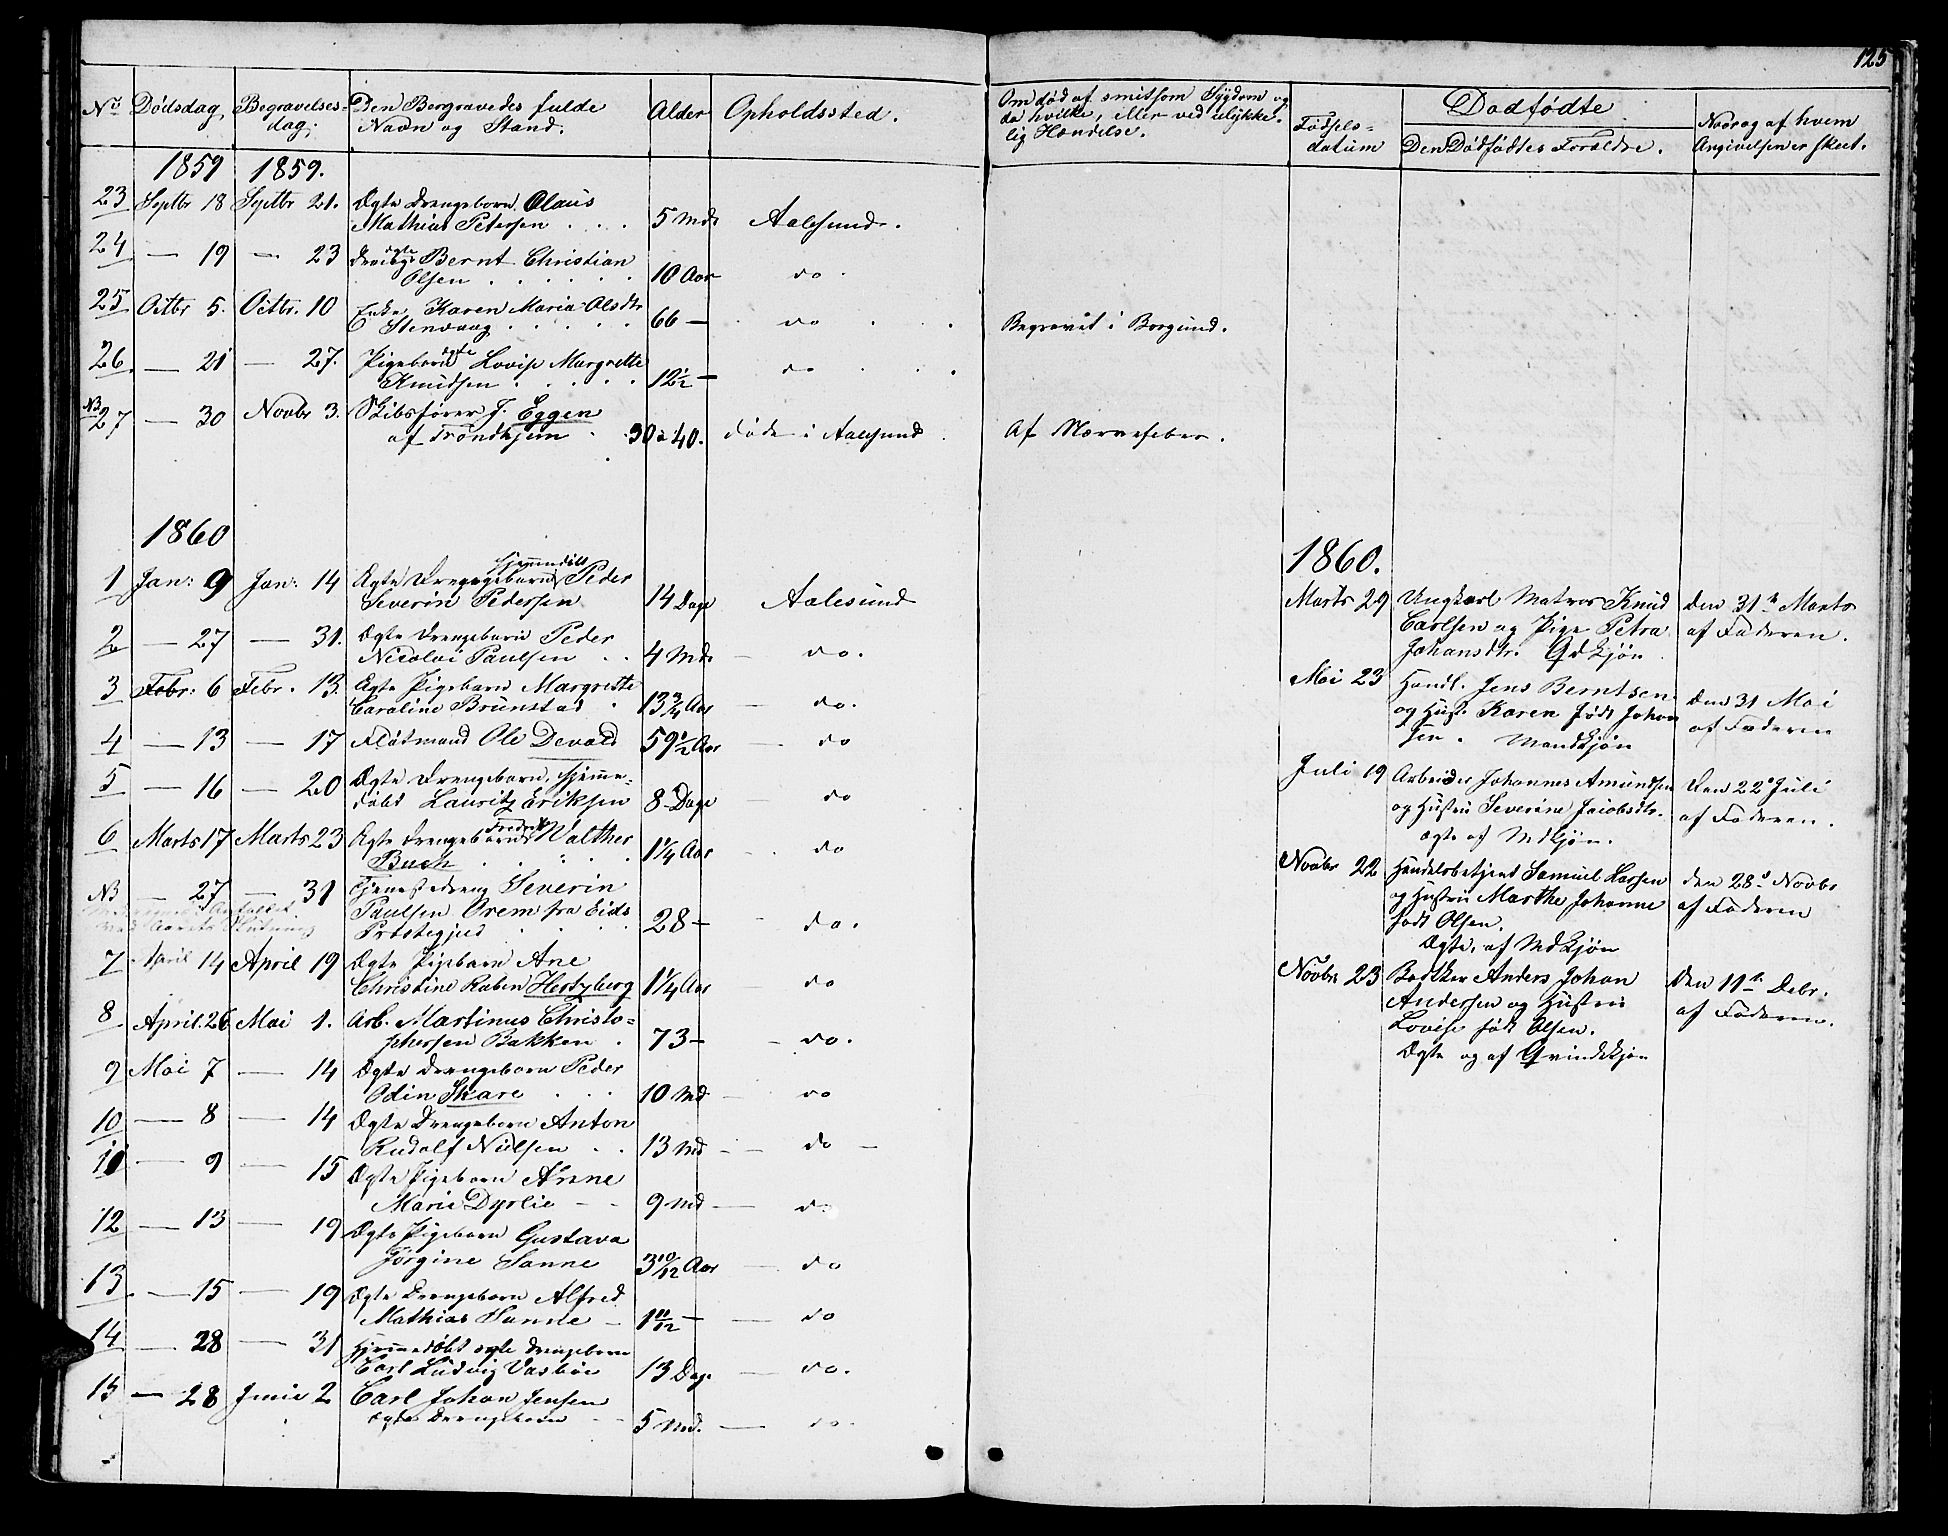 125
No Dödsdag, Begravelses-
dag. Den Bergravedes fulde
Navn og Stand. Alder Opholdssted.
Om död af smitsom Sygdom og
da hvilke, eller ved ulykke-
lig Hændelse.
Födsels-
datum
Dödfödte
Den Dödfödtes Forældre.
Naar og af hvem
Angivelsen er skeet.
1859 1859.
23 Septbr 18 Septbr 21. Ægte Drengebarn Olaus
Mathias Petersen . . . 5 Mdr Aalesund.
24 — 19 — 23 ægte
Drenge Bernt Christian
Olsen . . . . . . 10 Aar do.
25 Octbr 5. Octbr. 10 Enke Karen Maria Olsdtr
Stenvaag . . . . . 66 — do . . Begravet i Borgund.
26 — 21 — 27. Pigebarn ægte Lovise Margrette
Knudsen . . . . . 12½ — do . .
NB
27 — 30 Novbr 3. Skibsförer J. Eggen
af Trondhjem . 30 à 40. döde i Aalesund. Af Nervefeber.
1860
1 Jan: 9 Jan: 14 Ægte Drengebarn hjemmedöbt Peder
Severin Pedersen 14 Dage Aalesund
2 — 27 — 31. Ægte Drengebarn Peder
Nicolai Paulsen . . 4 Mdr — do.
3 Febr: 6 Febr. 13. Ægte Pigebarn Margrette
Caroline Brunstad . 13¾ Aar — do.
4 — 13 — 17 Flötmand Ole Devold 59½ Aar — do
5 — 16 — 20 Ægte Drengebarn, hjemme-
döbt Lauritz Eriksen 8 Dage — do
6 Marts 17 Marts 23 Ægte Drengebarn Fredrik Walther
Buch . . . . . 1¼ Aar — do
NB — 27 — 31 Tjenestedreng Severin
Paulsen Orem fra Eids
Præstegjed . . . . 28 — — do.
7 April 14 April 19 Ægte Pigebarn Ane
Christine Raben Hertzberg 1¼ Aar — do
8 April. 26 Mai 1. Arb. Martinus Christo-
phersen Bakken . 73 — — do.
9 Mai 7 — 14 Ægte Drengebarn Peder
Odin Skare . . . 10 Md — do
10 — 8 — 14 Ægte Drengebarn Anton
Rudolf Nielsen . . 13 Md — — do —
11 — 9 — 15 Ægte Pigebarn Anne
Marie Dyrlie — — 9 Md — do
12 — 13 — 19 Ægte Pigebarn Gustava
Jörgine Sanne 3 10/12 Aar — do
13 — 15 — 19 Ægte Drengebarn Alfred
Mathias Sanne — 1 11/12 — — do
14 — 28 — 31 Hjemmedöbt ægte Drengebarn
Carl Ludvig Vasböe 13 Dage — do.
15 — 28 Junii 2 Carl Johan Jensen
ægte Drengebarn — 5 Md. — do.
1860.
Marts 29 Ungkarl Matros Knud
Carlsen og Pige Petra
Johansdtr. Qdkjön. Den 31te Marts
af Faderen.
Mai 23 Handl. Jens Berntsen
og Hust. Karen födt Johan
sen. Mandkjön Den 31 Mai
af Faderen
Juli 19 Arbeider Johannes Amundsen
og Hustru Severine Jacobsdtr.
Ægte af Mdkjön. Den 22de Juli
af Faderen.
Novbr 22 Handelsbetjent Samuel Larsen
og Hustru Marthe Johanne
födt Olsen.
Ægte, af Mdkjön den 28de Novbr
af Faderen
Novbr 23 Bödtker Anders Johan
Andersen og Hustru
Lovise födt Olsen.
Ægte og af Qvindekjön Den 11te Debr.
af Faderen.